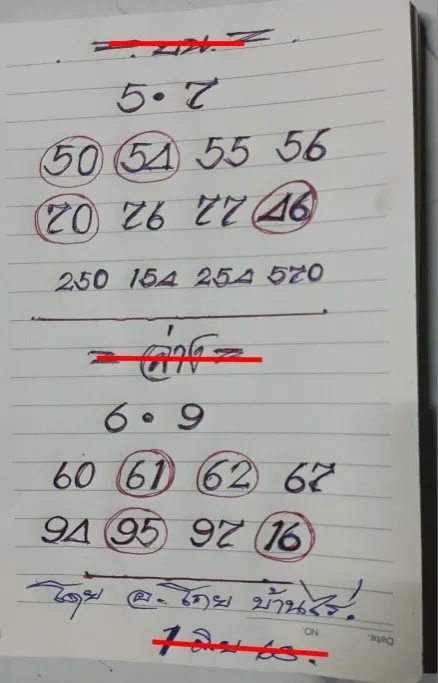 = บน. =
5 • 7
50 54 55 56
70 76 77 46
250 154 254 570
= ล่าง =
6 • 9
60 61 62 67
94 95 97 16
โดย อ. โดย บ้านไร่.
NO.
Date.
1